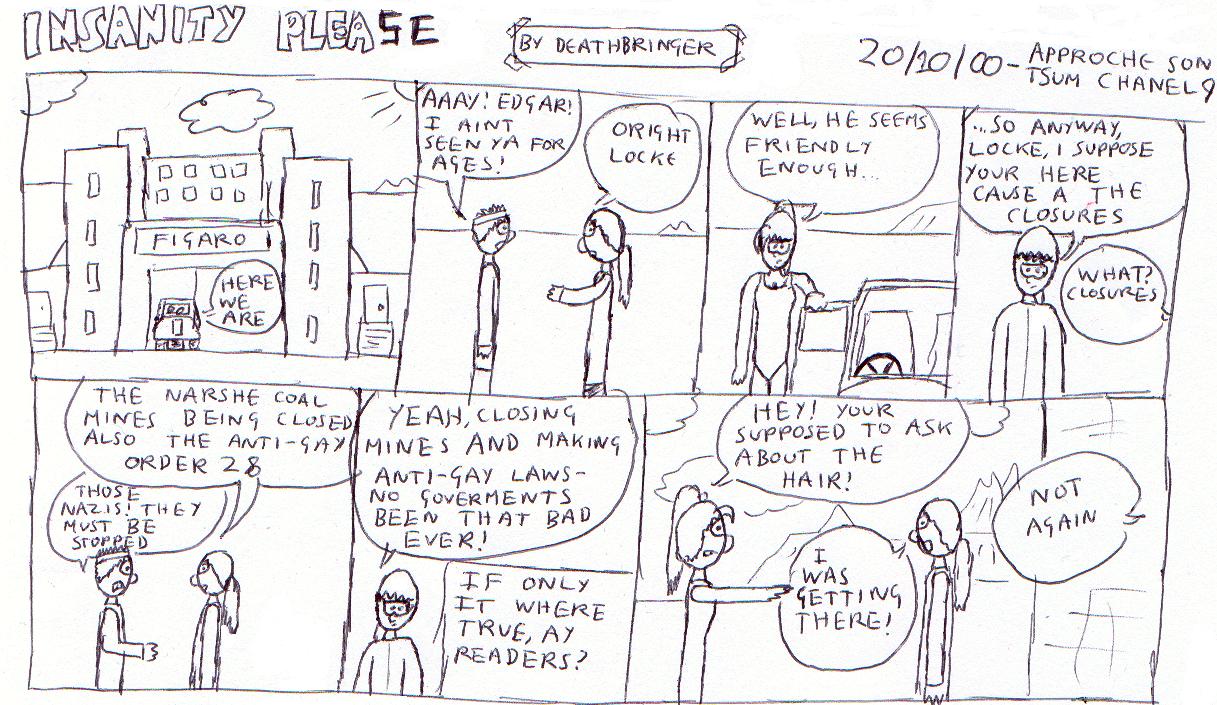 INSANITY PLEASE
BY DEATHBRINGER
20/10/00-APPROCHE SON
TSUM CHANEL 9
FIGARO
HERE
WE
ARE
AAAY! EDGAR!
I AINT
SEEN YA FOR
AGES!
ORIGHT
LOCKE
WELL, HE SEEMS
FRIENDLY
ENOUGH...
...SO ANYWAY,
LOCKE, I SUPPOSE
YOUR HERE
CAUSE A THE
CLOSURES
WHAT?
CLOSURES
THE NARSHE COAL
MINES BEING CLOSED
ALSO THE ANTI-GAY
ORDER 28
THOSE
NAZIS! THEY
MUST BE
STOPPED
YEAH, CLOSING
MINES AND MAKING
ANTI-GAY LAWS-
NO GOVERMENTS
BEEN THAT BAD
EVER!
IF ONLY
IT WHERE
TRUE, AY
READERS?
HEY! YOUR
SUPPOSED TO ASK
ABOUT THE
HAIR!
I
WAS
GETTING
THERE!
NOT
AGAIN